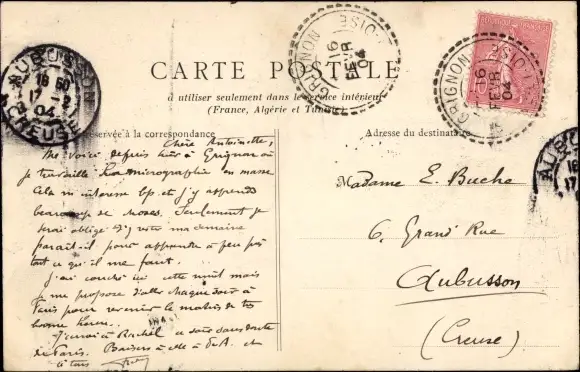 CARTE POSTALE
à utiliser seulement dans le service intérieur
(France, Algérie et Tunisie)
réservée à la correspondance
Adresse du destinataire
Chère Antoinette,
Me voici depuis hier à Grignon où
je travaille la micrographie en masse
Cela m'intéresse bp. et j'y apprends
beaucoup de choses. Seulement je
serai obligé d'y rester ma semaine
paraît-il pour apprendre à peu près
tout ce qu'il me faut.
J'ai couché ici cette nuit mais
je me propose d'aller chaque soir à
Paris pour revenir le matin de très
bonne heure.
J'écrirai à Rachel ce soir sans doute
de Paris. Baisers à elle à et
à tous
Madame E. Buche
6, Grand Rue
Aubusson
(Creuse)
GRIGNON
16
FEVR
04
S.-OISE
GRIGNON
16
FEVR
04
S.-OISE
10
AUBUSSON
18 50
17 - 2
04
CREUSE
AUBUS
18
17